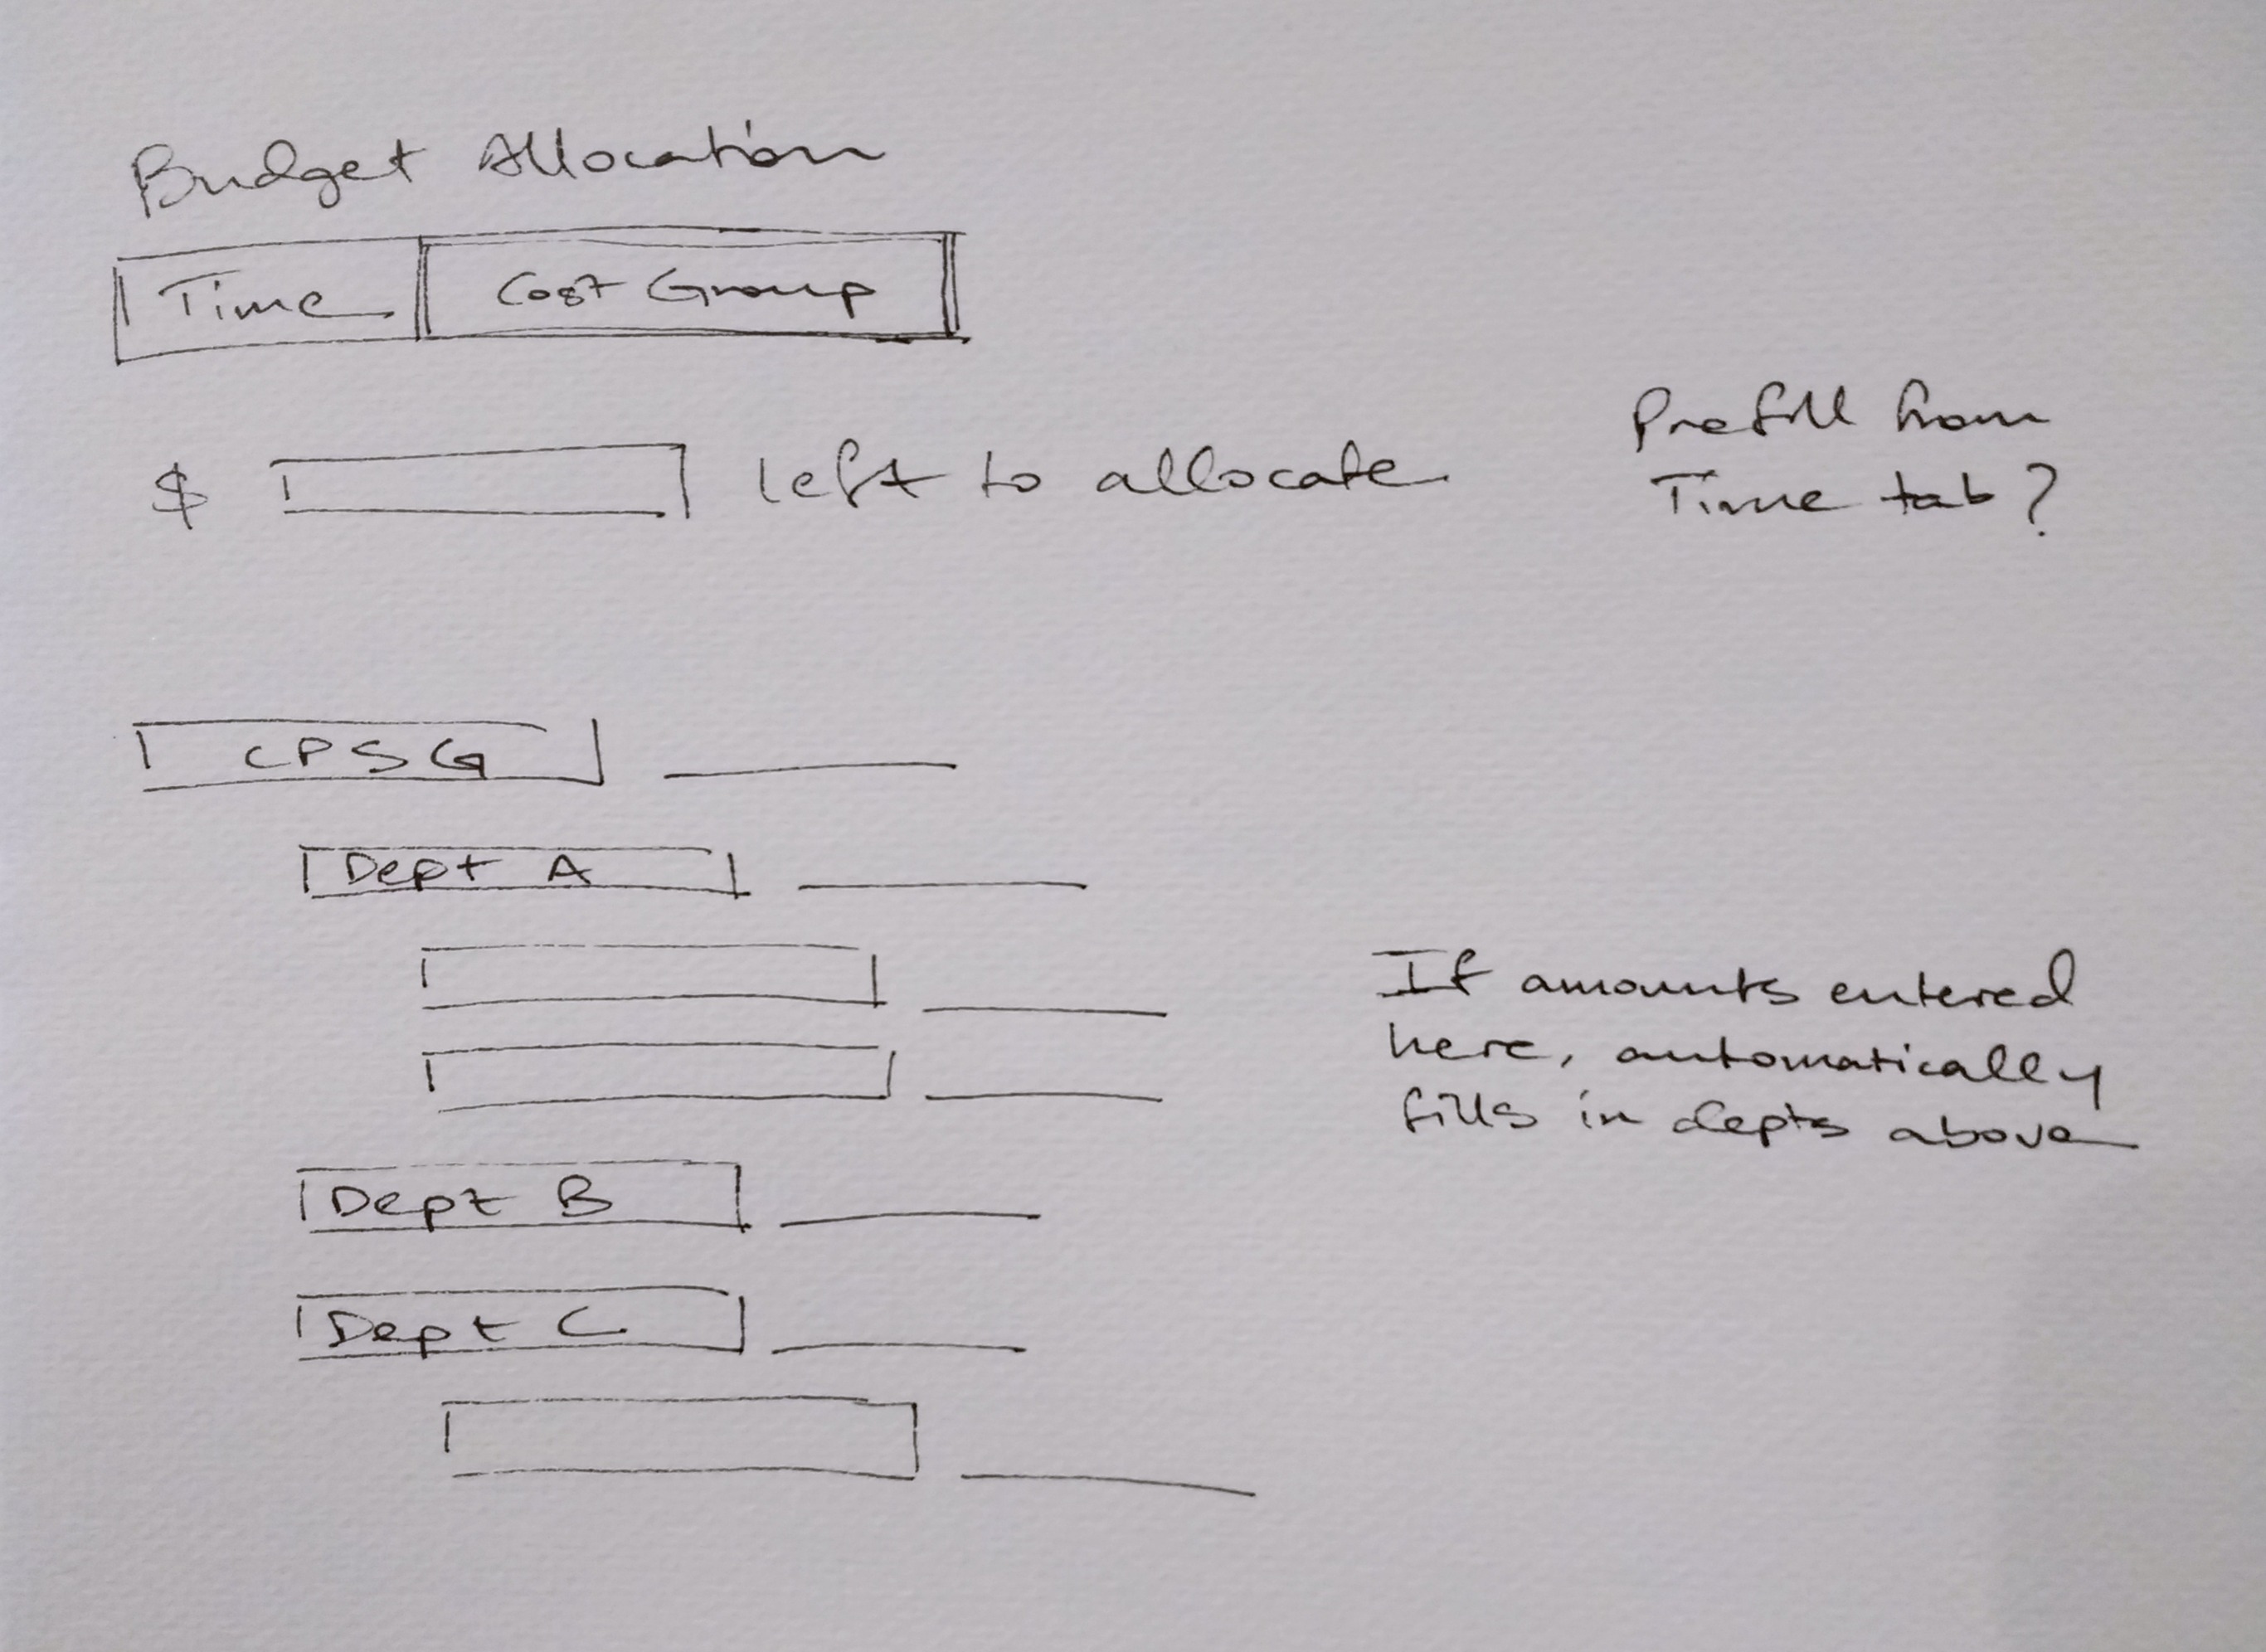 Budget Allocation
Time
Cost Group
$
left to allocate
Prefill from
Time tab?
CPSG
Dept A
If amounts entered
here, automatically
fills in depts above
Dept B
Dept C